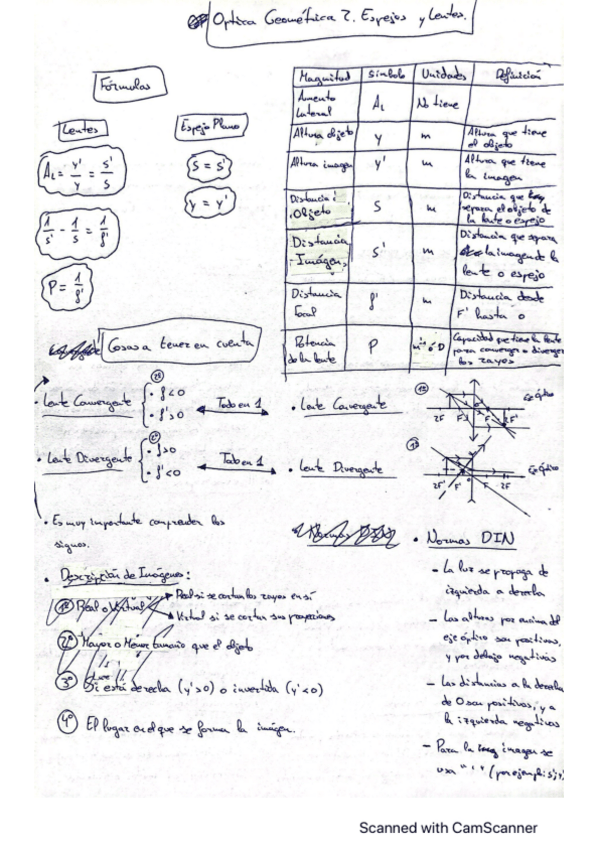 Optica Geométrica 2. Espejos y Lentes.
Fórmulas
Lentes
Espejo Plano
A_L = y'/y = s'/s
1/s' - 1/s = 1/f'
P = 1/f'
s = s'
y = y'
Magnitud Símbolo Unidades Definición
Aumento Lateral A_L No tiene
Altura objeto y m Altura que tiene el objeto
Altura imagen y' m Altura que tiene la imagen
Distancia Objeto s m Distancia que separa el objeto de la lente o espejo
Distancia Imágen s' m Distancia que separa la imagen de la lente o espejo
Distancia focal f' m Distancia desde F' hasta O
Potencia de la lente P m⁻¹ ó D Capacidad que tiene la lente para converger o diverger los rayos
Cosas a tener en cuenta
• Lente Convergente
• f<0
• f'>0
Todo en 1
• Lente Convergente
Eje Óptico
2F F F'
• Lente Divergente
• f>0
• f'<0
Todo en 1
• Lente Divergente
Eje Óptico
2F' F' F 2F
• Es muy importante comprender los
signos.
• Descripción de Imágenes:
1º Real o Virtual
Real si se cortan los rayos en sí
Virtual si se cortan sus proyecciones
2º Mayor o Menor tamaño que el objeto
3º Si está derecha (y'>0) o invertida (y'<0)
4º El lugar en el que se forma la imágen.
• Normas DIN
- La luz se propaga de
izquierda a derecha
- Las alturas por encima del
eje óptico son positivas,
y por debajo negativas
- Las distancias a la derecha
de O son positivas, y a
la izquierda negativas
- Para la imagen se
usa " ' " (por ejemplo s')
Scanned with CamScanner